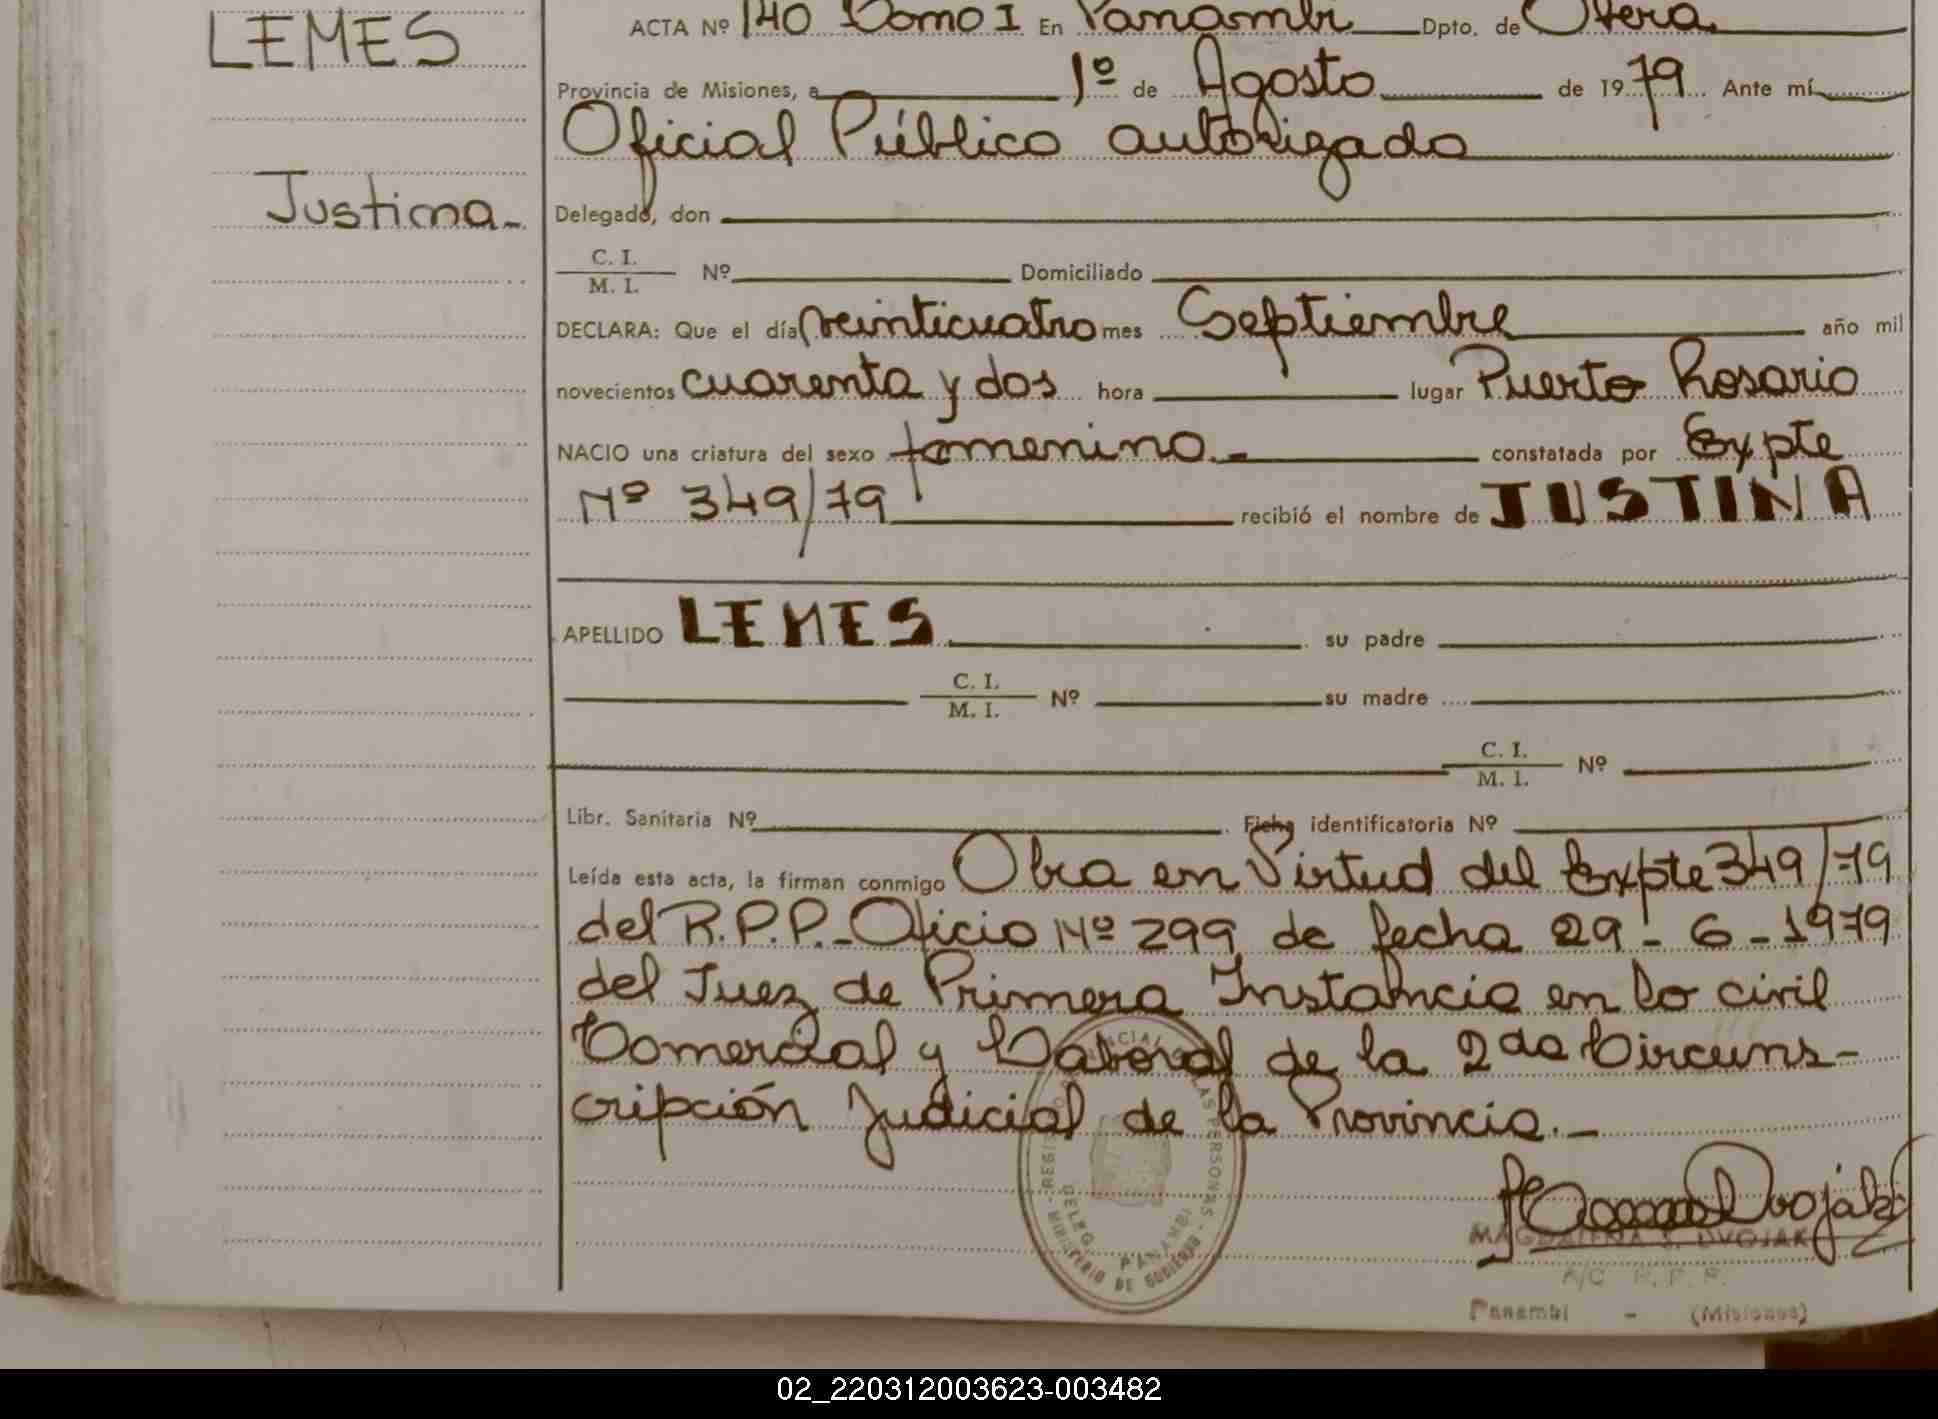 LEMES
Justina-
ACTA Nº 140 Tomo I En Panambi Dpto. de Obera
Provincia de Misiones, a 1º de Agosto de 1979 Ante mí
Oficial Público autorizado
Delegado, don
C. I.
M. I.
Nº Domiciliado
DECLARA: Que el día veinticuatro mes Septiembre año mil
novecientos cuarenta y dos hora lugar Puerto Rosario
NACIO una criatura del sexo femenino.- constatada por Expte
Nº 349/79 recibió el nombre de JUSTINA
APELLIDO LEMES su padre
C. I.
M. I.
Nº su madre
C. I.
M. I.
Nº
Libr. Sanitaria Nº Ficha identificatoria Nº
Leída esta acta, la firman conmigo Obra en Virtud del Expte 349/79
del R.P.P.-Oficio Nº 299 de fecha 29-6-1979
del Juez de Primera Instancia en lo civil
Comercial y Laboral de la 2da Circuns-
cripción Judicial de la Provincia.-
REGISTRO PROVINCIAL DE LAS PERSONAS
DELEG. PANAMBI
MINISTERIO DE GOBIERNO
Dvojak
MAGDALENA S. DVOJAK
A/C R. P. P.
Panambi - (Misiones)
02_220312003623-003482